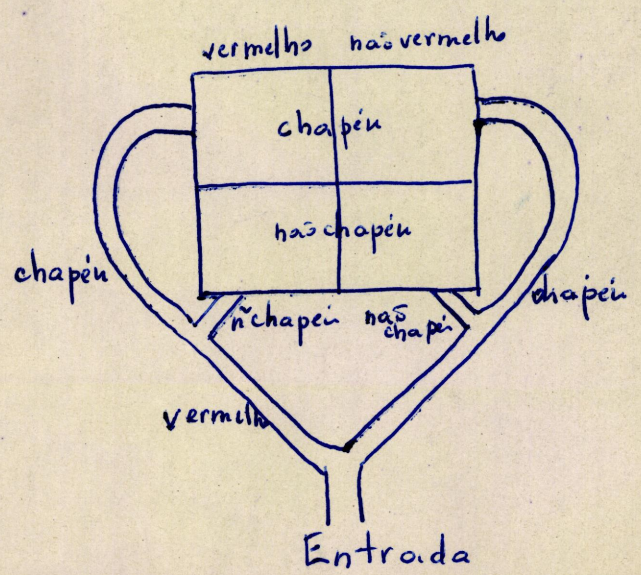 vermelho não vermelho
chapéu
não chapéu
chapéu
ñ chapéu
não
chapéu
chapéu
vermelho
Entrada